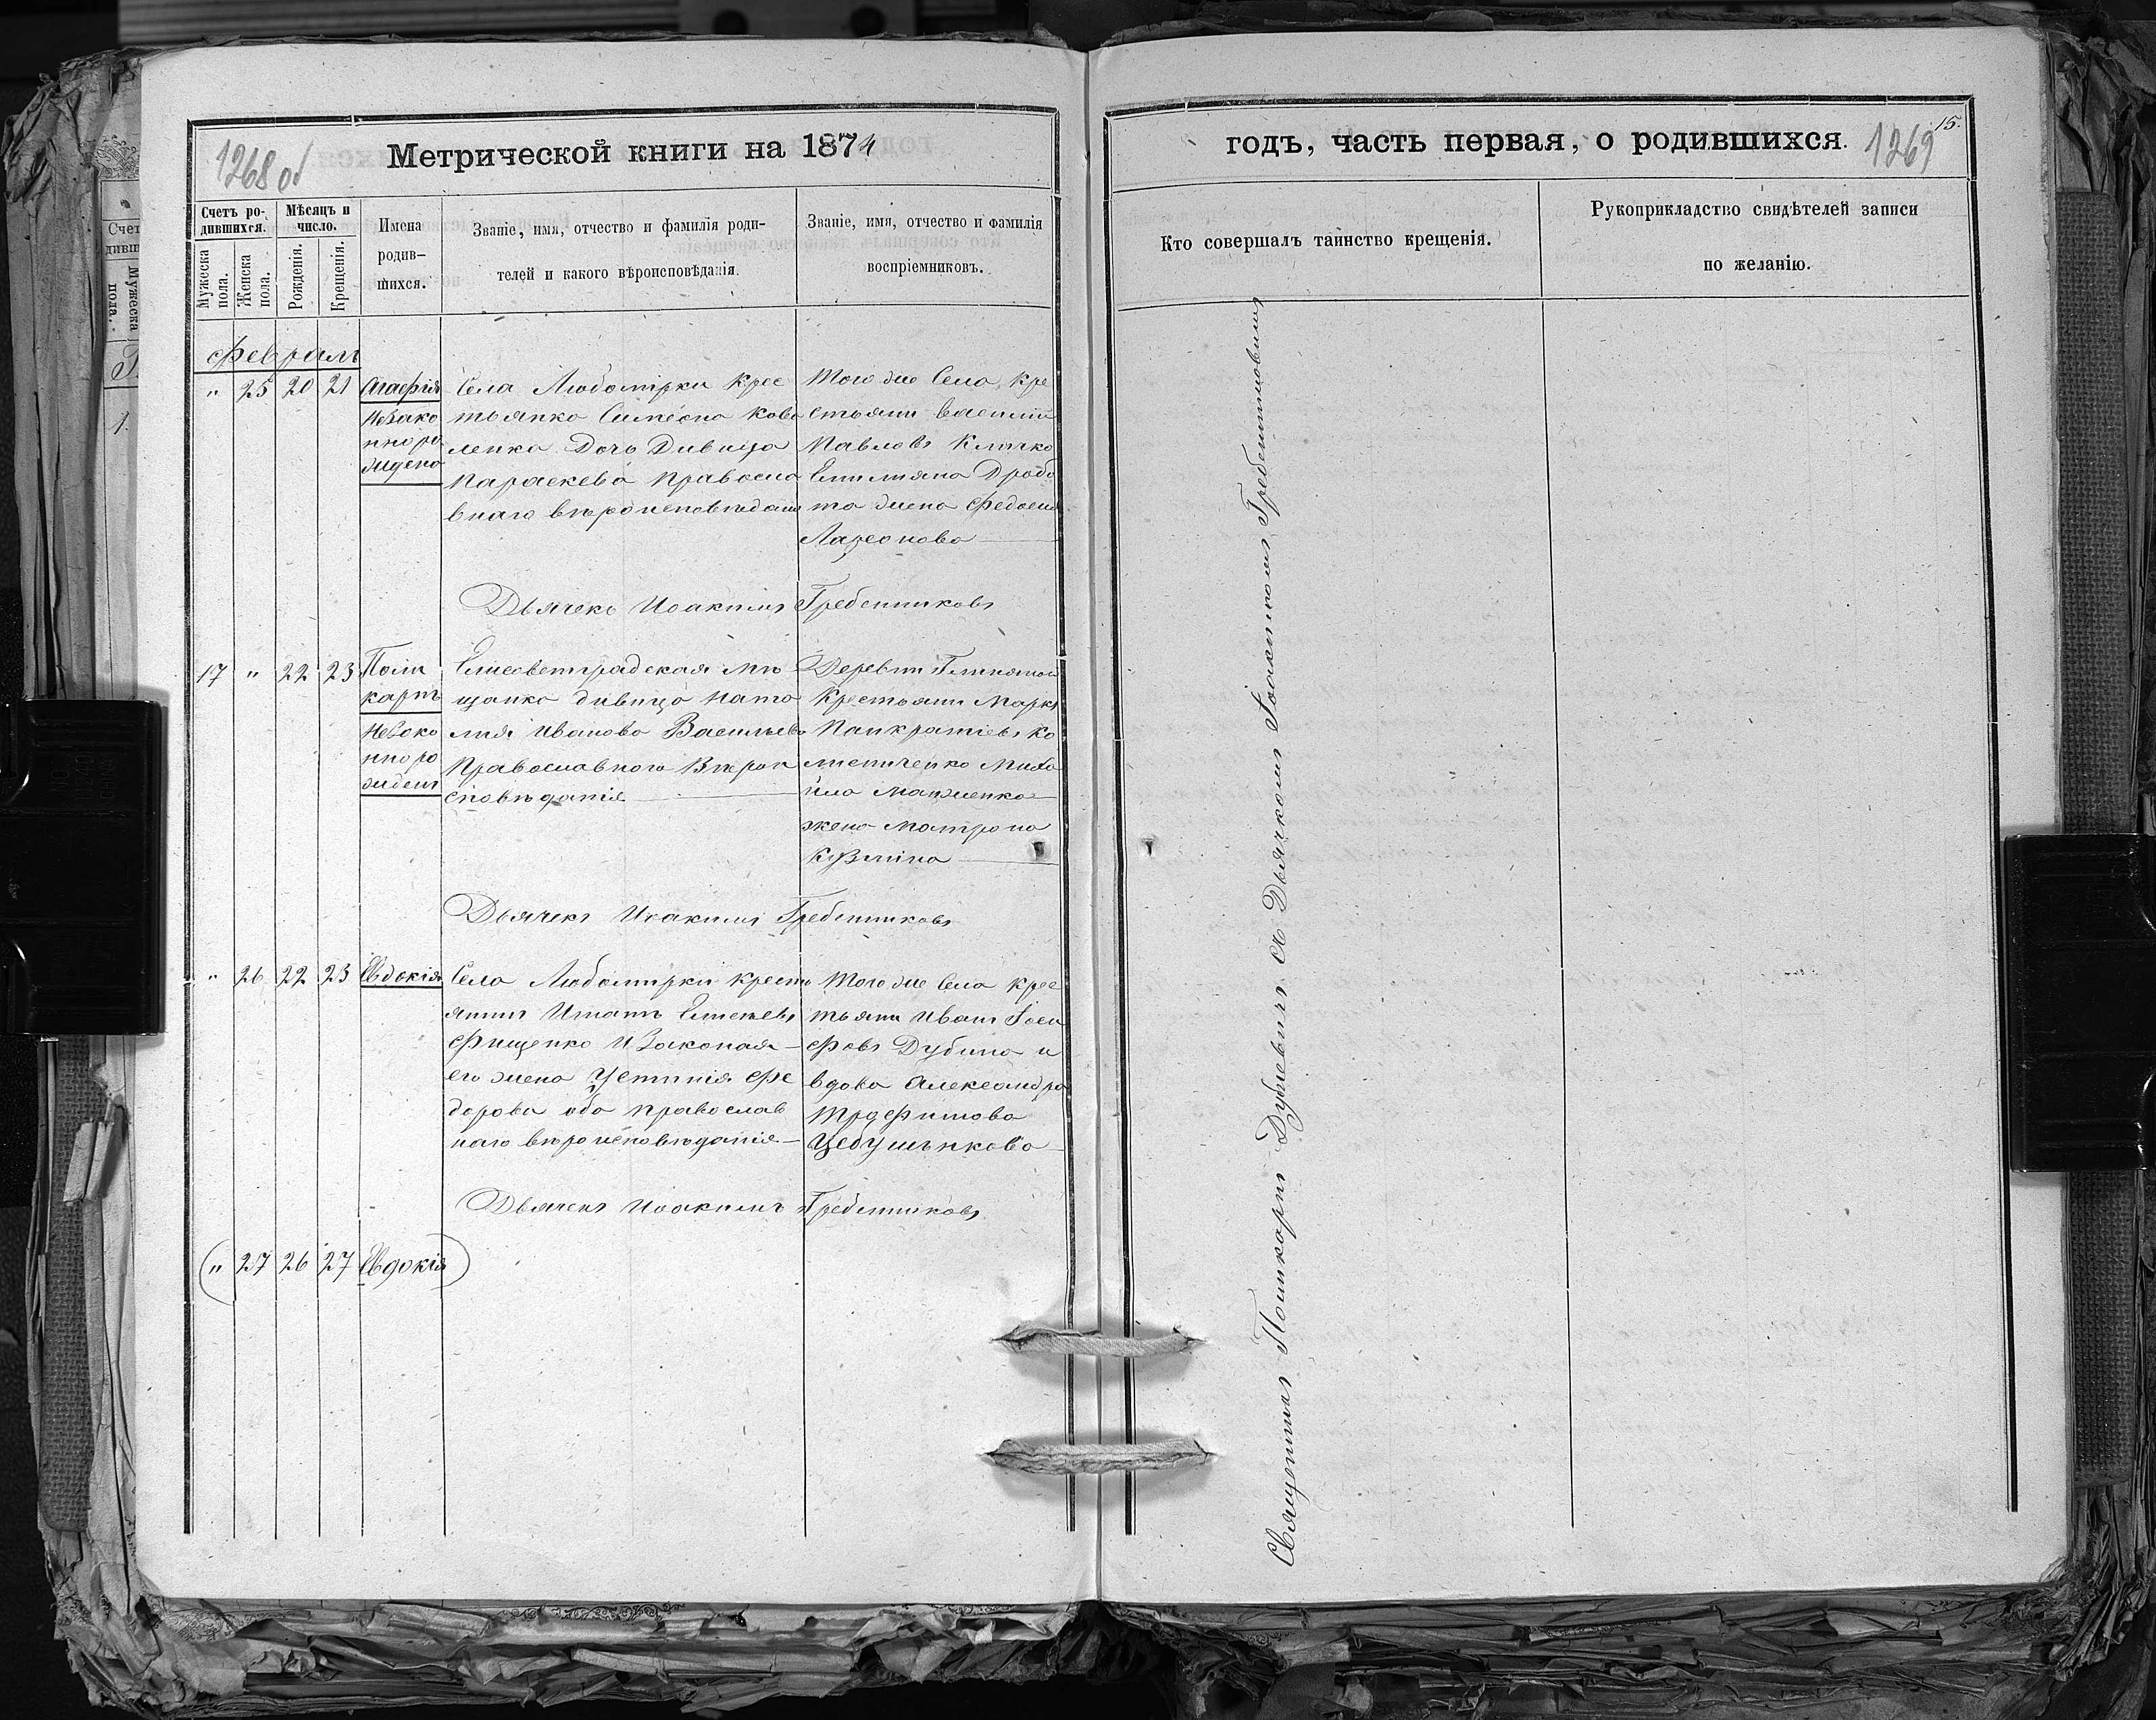 1268 об
Метрической книги на 1874
Счетъ ро-
дившихся.
Мѣсяцъ и
число.
Мужеска
пола.
Женска
пола.
Рожденія.
Крещенія.
Имена
родив-
шихся.
Званіе, имя, отчество и фамилія роди-
телей и какого вѣроисповѣданія.
Званіе, имя, отчество и фамилія
воспріемниковъ.
Февраль
" 25 20 21 Агафія
Незако
нноро
ждена
Села Любомірки Крес
тьянка Симеона Кова
ленка Дочь Дивица
Параскева Правосла
внаго вѣроисповѣдани
Того же Села Кре
стьяни Василій
Павловъ Кличко
Емиліяна Дробо
та жена Федосия
Ларіонова
Дьячекъ Иоакимъ Гребенниковъ
17 " 22 23 Поли
карпъ
Незако
нноро
жденъ
Елисаветградская мѣ
щанка дивица Ната
лия Иванова Васильева
Православнаго Вѣрои
сповѣданія
Деревни
Крестьяни Марка
Панкратіевъ Ко
Миха
йла
жена Матрона
Кузмина
Дьячекъ Иоакимъ Гребенниковъ
" 26 22 23 Евдокія
Села Любомирки Кресть
янинъ Игнатъ
Фищенко и Законная
его жена Устинія Фе
дорова оба православ
наго вѣроисповѣданія
Того же Села Крес
тьяни Иванъ Іоси
фовъ Дубина и
вдова Александра
Трофимова
Дьячекъ Иоакимъ Гребенниковъ
(" 27 26 27 Евдокія)
годъ, часть первая, о родившихся.
1269
15.
Кто совершалъ таинство крещенія.
Рукоприкладство свидѣтелей записи
по желанію.
Священникъ Поликарпъ Дуневичъ съ Дьячкомъ Іоакимомъ Гребенниковымъ